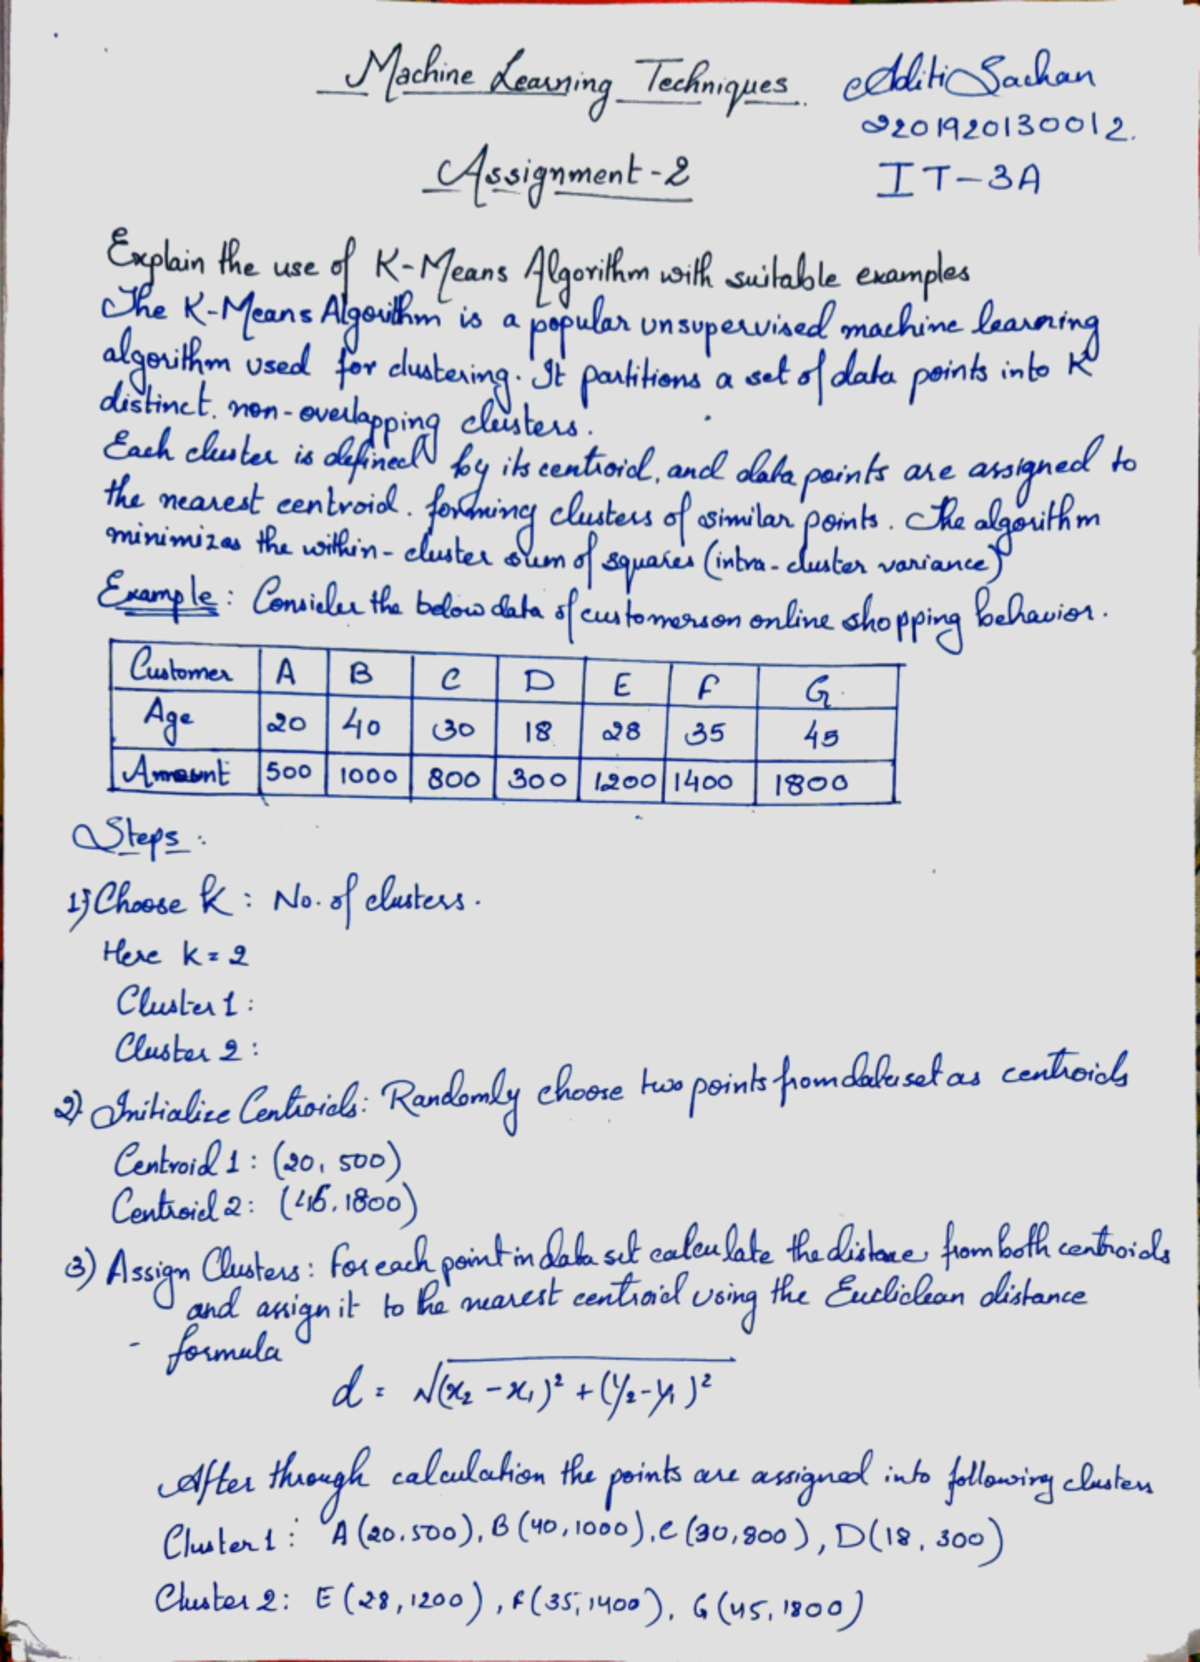 Machine Learning Techniques.
Aditi Sachan
2201920130012.
IT-3A
Assignment-2
Explain the use of K-Means Algorithm with suitable examples
The K-Means Algorithm is a popular unsupervised machine learning
algorithm used for clustering. It partitions a set of data points into K
distinct. non-overlapping clusters.
Each cluster is defined by its centroid, and data points are assigned to
the nearest centroid. forming clusters of similar points. The algorithm
minimizes the within-cluster sum of squares (intra-cluster variance)
Example: Consider the below data of customers on online shopping behavior.
Customer A B C D E F G
Age 20 40 30 18 28 35 45
Amount 500 1000 800 300 1200 1400 1800
Steps:
1) Choose K: No. of clusters.
Here k=2
Cluster 1:
Cluster 2:
2) Initialize Centroids: Randomly choose two points from dataset as centroids
Centroid 1: (20, 500)
Centroid 2: (45, 1800)
3) Assign Clusters: For each point in data set calculate the distance from both centroids
and assign it to the nearest centroid using the Euclidean distance
- formula
d = √(x₂-x₁)²+(y₂-y₁)²
After through calculation the points are assigned into following clusters
Cluster 1: A(20,500), B(40,1000), C(30,800), D(18, 300)
Cluster 2: E(28,1200), F(35,1400), G(45,1800)